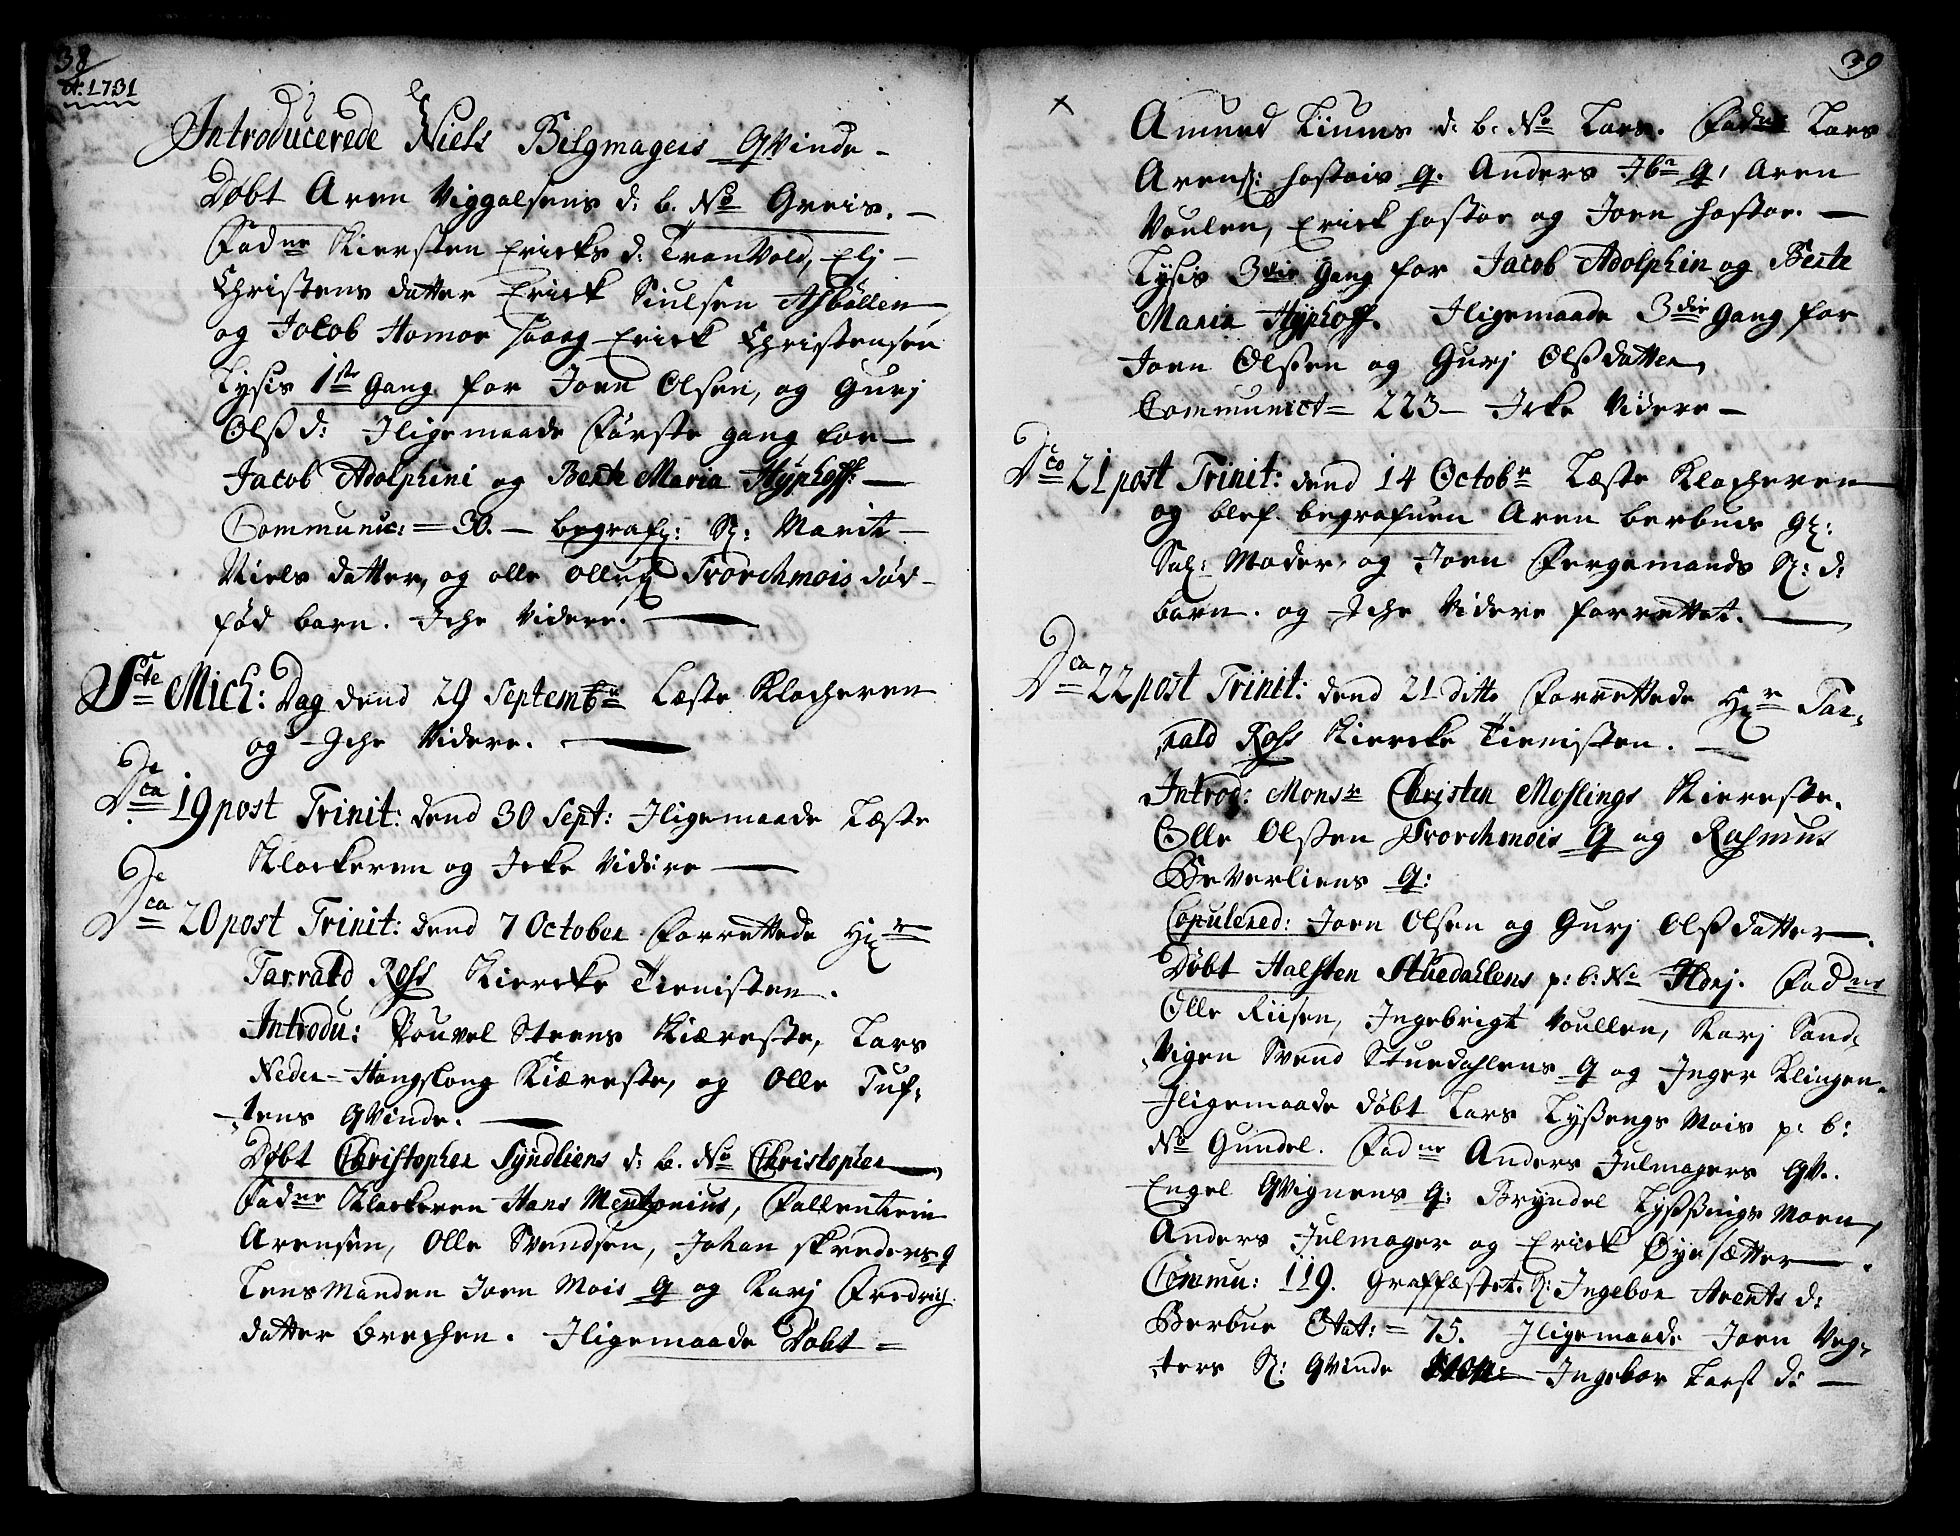 38
A: 1731
Introducerede Niels Bilgmagers QVinde -
Døbt Aren Viggalsens d: b. No Greis. -
Fadne Kiersten Ericks d: TronVold, Elj -
Christens datter Erick Siulsen Asbøllen
og Jocob Homoe Erick Christensen
Lysis 1ste Gang for Joen Olsen, og Gurj
Olsd: Iligemaade Første gang for -
Jacob Adolphini og Berte Maria Hyphoff -
Communic: = 30. - begrafu: Sl: Marit -
Niels datter, og olle Trorchmois død-
fød barn. Iche Videre. -
Scte Mich: Dag dend 29 Septembr Læste Klocheren
og Iche Videre. -
Dca 19 post Trinit: dend 30 Sept: Iligemaade Læste
Klockeren og Icke Videre -
Dca 20 post Trinit: dend 7 October Forrettede Hr
Tarrald Ross Kiercke Tienisten.
Introdu: Pouvel Steens Kiæreste, Lars
Neder = Haugslong Kiæreste, og Olle Tuf-
tens QVinde. -
Døbt Christopher Syndliens d: b. No Christopher -
Fadne Klockeren Hans Mentzonius, Fallentin
Arensen, Olle Svendsen, Johan Skreders Q
Lensmanden Joen Mois Q og Karj Fredrich
datter Brechen. Iligemaade Døbt =
39
Amund Liums d: b: No Lars. Fadne Lars
Arens: hostois Q. Anders Ibn Q, Aren
Voulen, Erick hostoe og Joen hostoe. -
Lysis 3die Gang for Jacob Adolphin og Berte
Maria Hyphoff. Iligemaade 3die Gang for
Joen Olsen og Gurj Olsdatter,
Communict = 223 - Icke Videre -
Dca 21 post Trinit: dend 14 Octobr Læste Klocheren
og blef begrafuen Aren berbues
Sal: Moder, og Joen Fergemands Sl: d:
barn. og Iche Videre forrettet. -
Dca 22 post Trinit: dend 21 ditto Forrettede Hr Tar-
rald Ross Kiercke Tienisten. -
Introd: Monsr Christen Moslings Kiereste.
Olle Olsten Trorchmois Q og Rasmus
BeVerliens Q:
Copulered: Joen Olsen og Gurj Olsdatter -.
Døbt Halsten Stuedallens p: b: No Ildrj. Fadne
Olle Riisen, Ingebrigt Voullen, Karj Sand-
Vigen Svend Stuedahlens Q og Inger Klingen.
Iligemaade døbt Lars Lyßengs Mois p: b:
No Gundel. Fadne Anders Julmagers QV.
Engel QVignens Q: Bryndel Lyßengs Moen,
Anders Julmager og Erick Øyesætter -.
Commu: 119. Graffæstet. Sl: Ingebor Arents d:
Berbue Etat: = 75. Iligemaade Joen Veg-
ters Sl: QVinde Ingebor Larst d: -